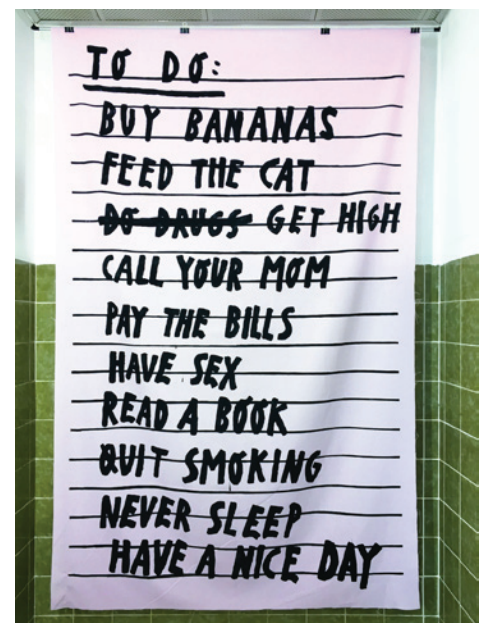 TO DO:
BUY BANANAS
FEED THE CAT
DO DRUGS GET HIGH
CALL YOUR MOM
PAY THE BILLS
HAVE SEX
READ A BOOK
QUIT SMOKING
NEVER SLEEP
HAVE A NICE DAY